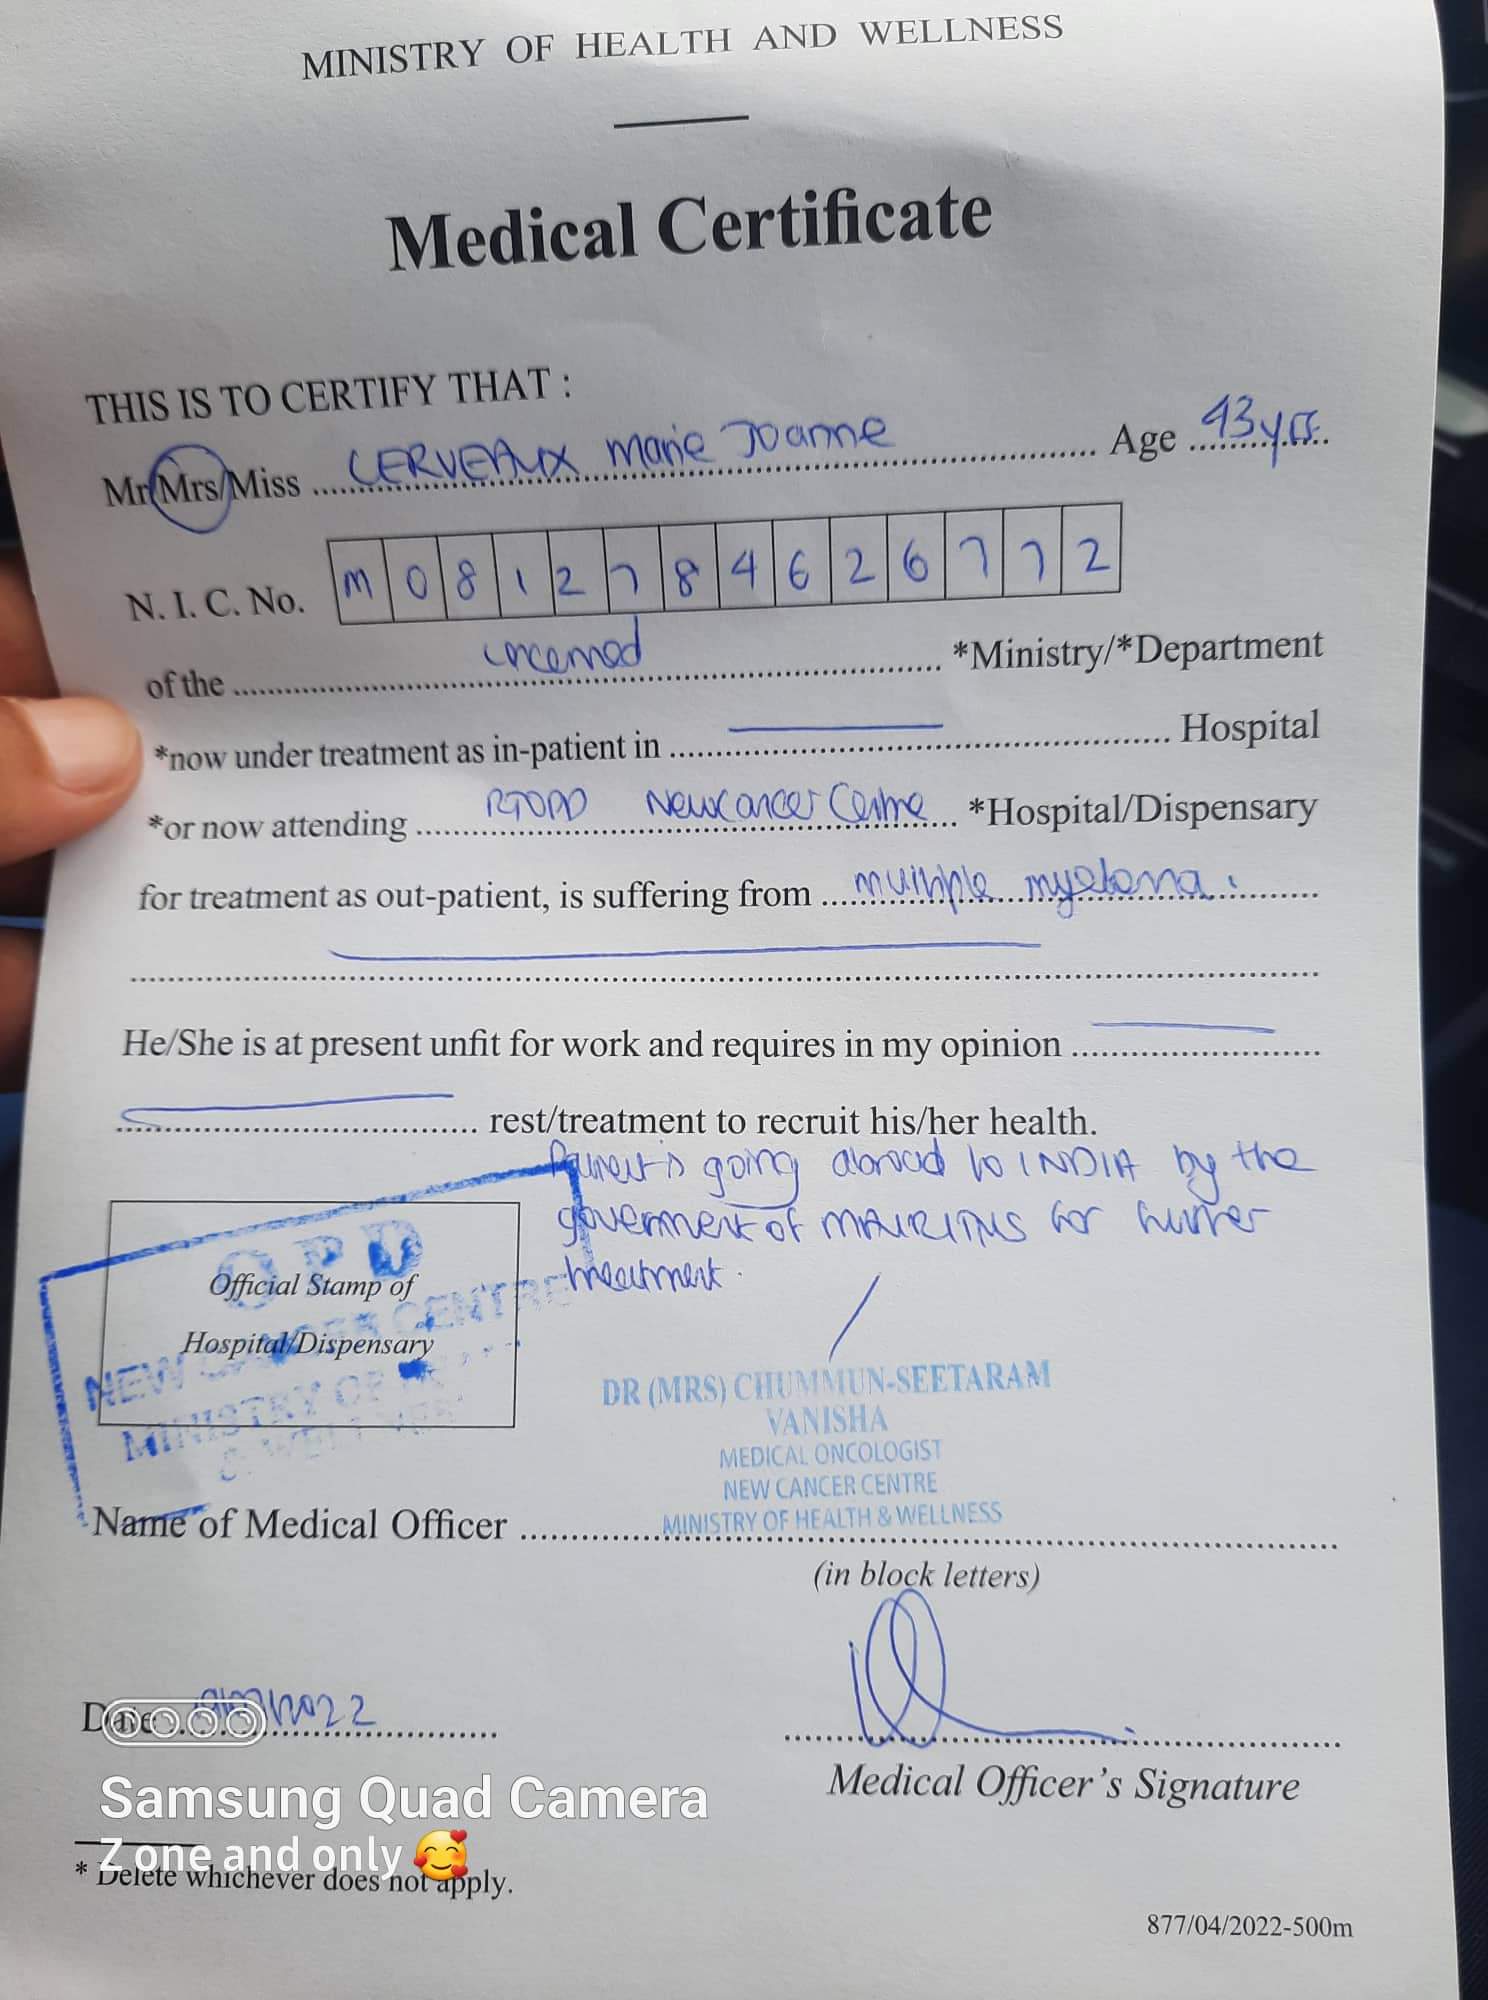 MINISTRY OF HEALTH AND WELLNESS
Medical Certificate
THIS IS TO CERTIFY THAT :
Mr/Mrs/Miss CERVEAUX Marie Joanne Age 43 yrs
N. I. C. No. M 0 8 1 2 7 8 4 6 2 6 7 7 2
of the concerned *Ministry/*Department
*now under treatment as in-patient in Hospital
*or now attending RTOPD New Cancer Centre *Hospital/Dispensary
for treatment as out-patient, is suffering from multiple myeloma.
He/She is at present unfit for work and requires in my opinion
rest/treatment to recruit his/her health.
Patient is going abroad to INDIA by the
government of MAURITIUS for further
treatment.
OPD
NEW CANCER CENTRE
MINISTRY OF
& WELLNESS
Official Stamp of
Hospital/Dispensary
DR (MRS) CHUMMUN-SEETARAM
VANISHA
MEDICAL ONCOLOGIST
NEW CANCER CENTRE
MINISTRY OF HEALTH & WELLNESS
Name of Medical Officer
(in block letters)
Date 2022
Medical Officer's Signature
Samsung Quad Camera
Z one and only 🥰
* Delete whichever does not apply.
877/04/2022-500m